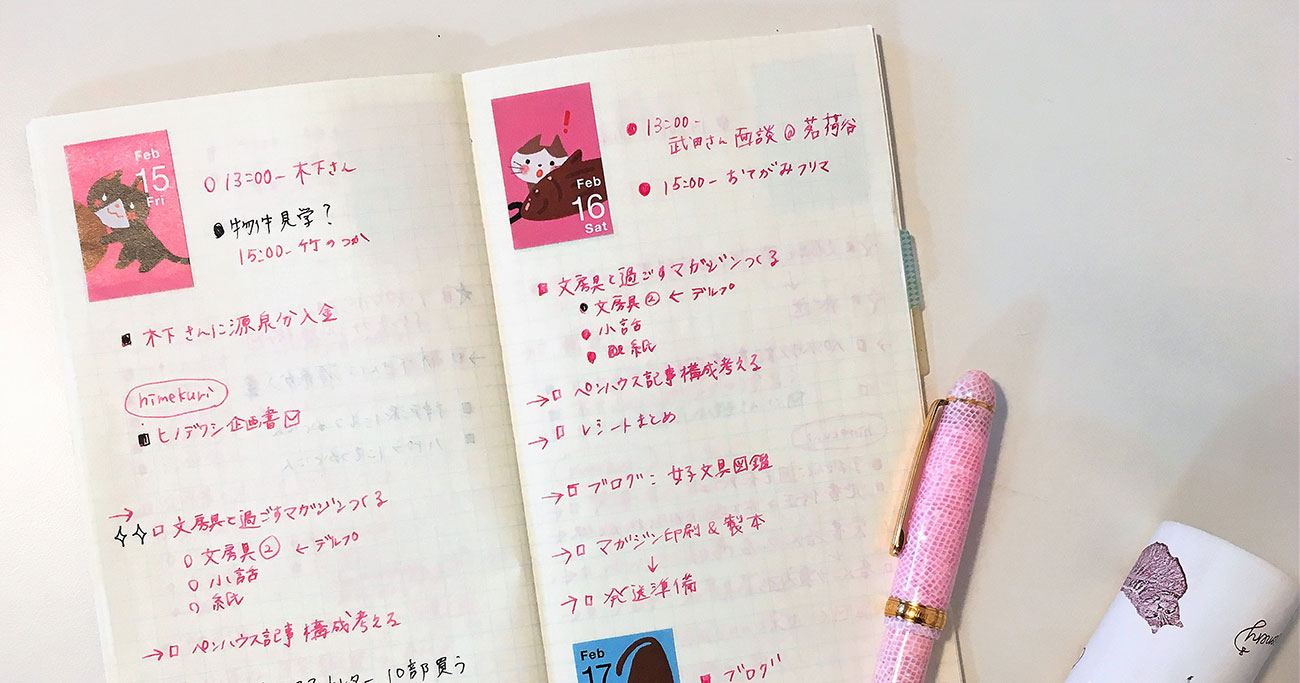 Feb
15
Fri
13:00- 木下さん
物件見学?
15:00- 竹のつか
木下さんに源泉分入金
himekuri
ヒノデワシ企画書
→
文房具と過ごすマガジンつくる
文房具② ← デルプ
小話
紙
→ ペンハウス記事構成考える
10部買う
!
Feb
16
Sat
13:00-
武田さん面談@茗荷谷
15:00- おてがみフリマ
文房具と過ごすマガジンつくる
文房具② ← デルプ
小話
紙
→ ペンハウス記事構成考える
→ レシートまとめ
→ ブログ: 女子文具図鑑
→ マガジン印刷&製本
↓
→ 発送準備
Feb
17
ブログ